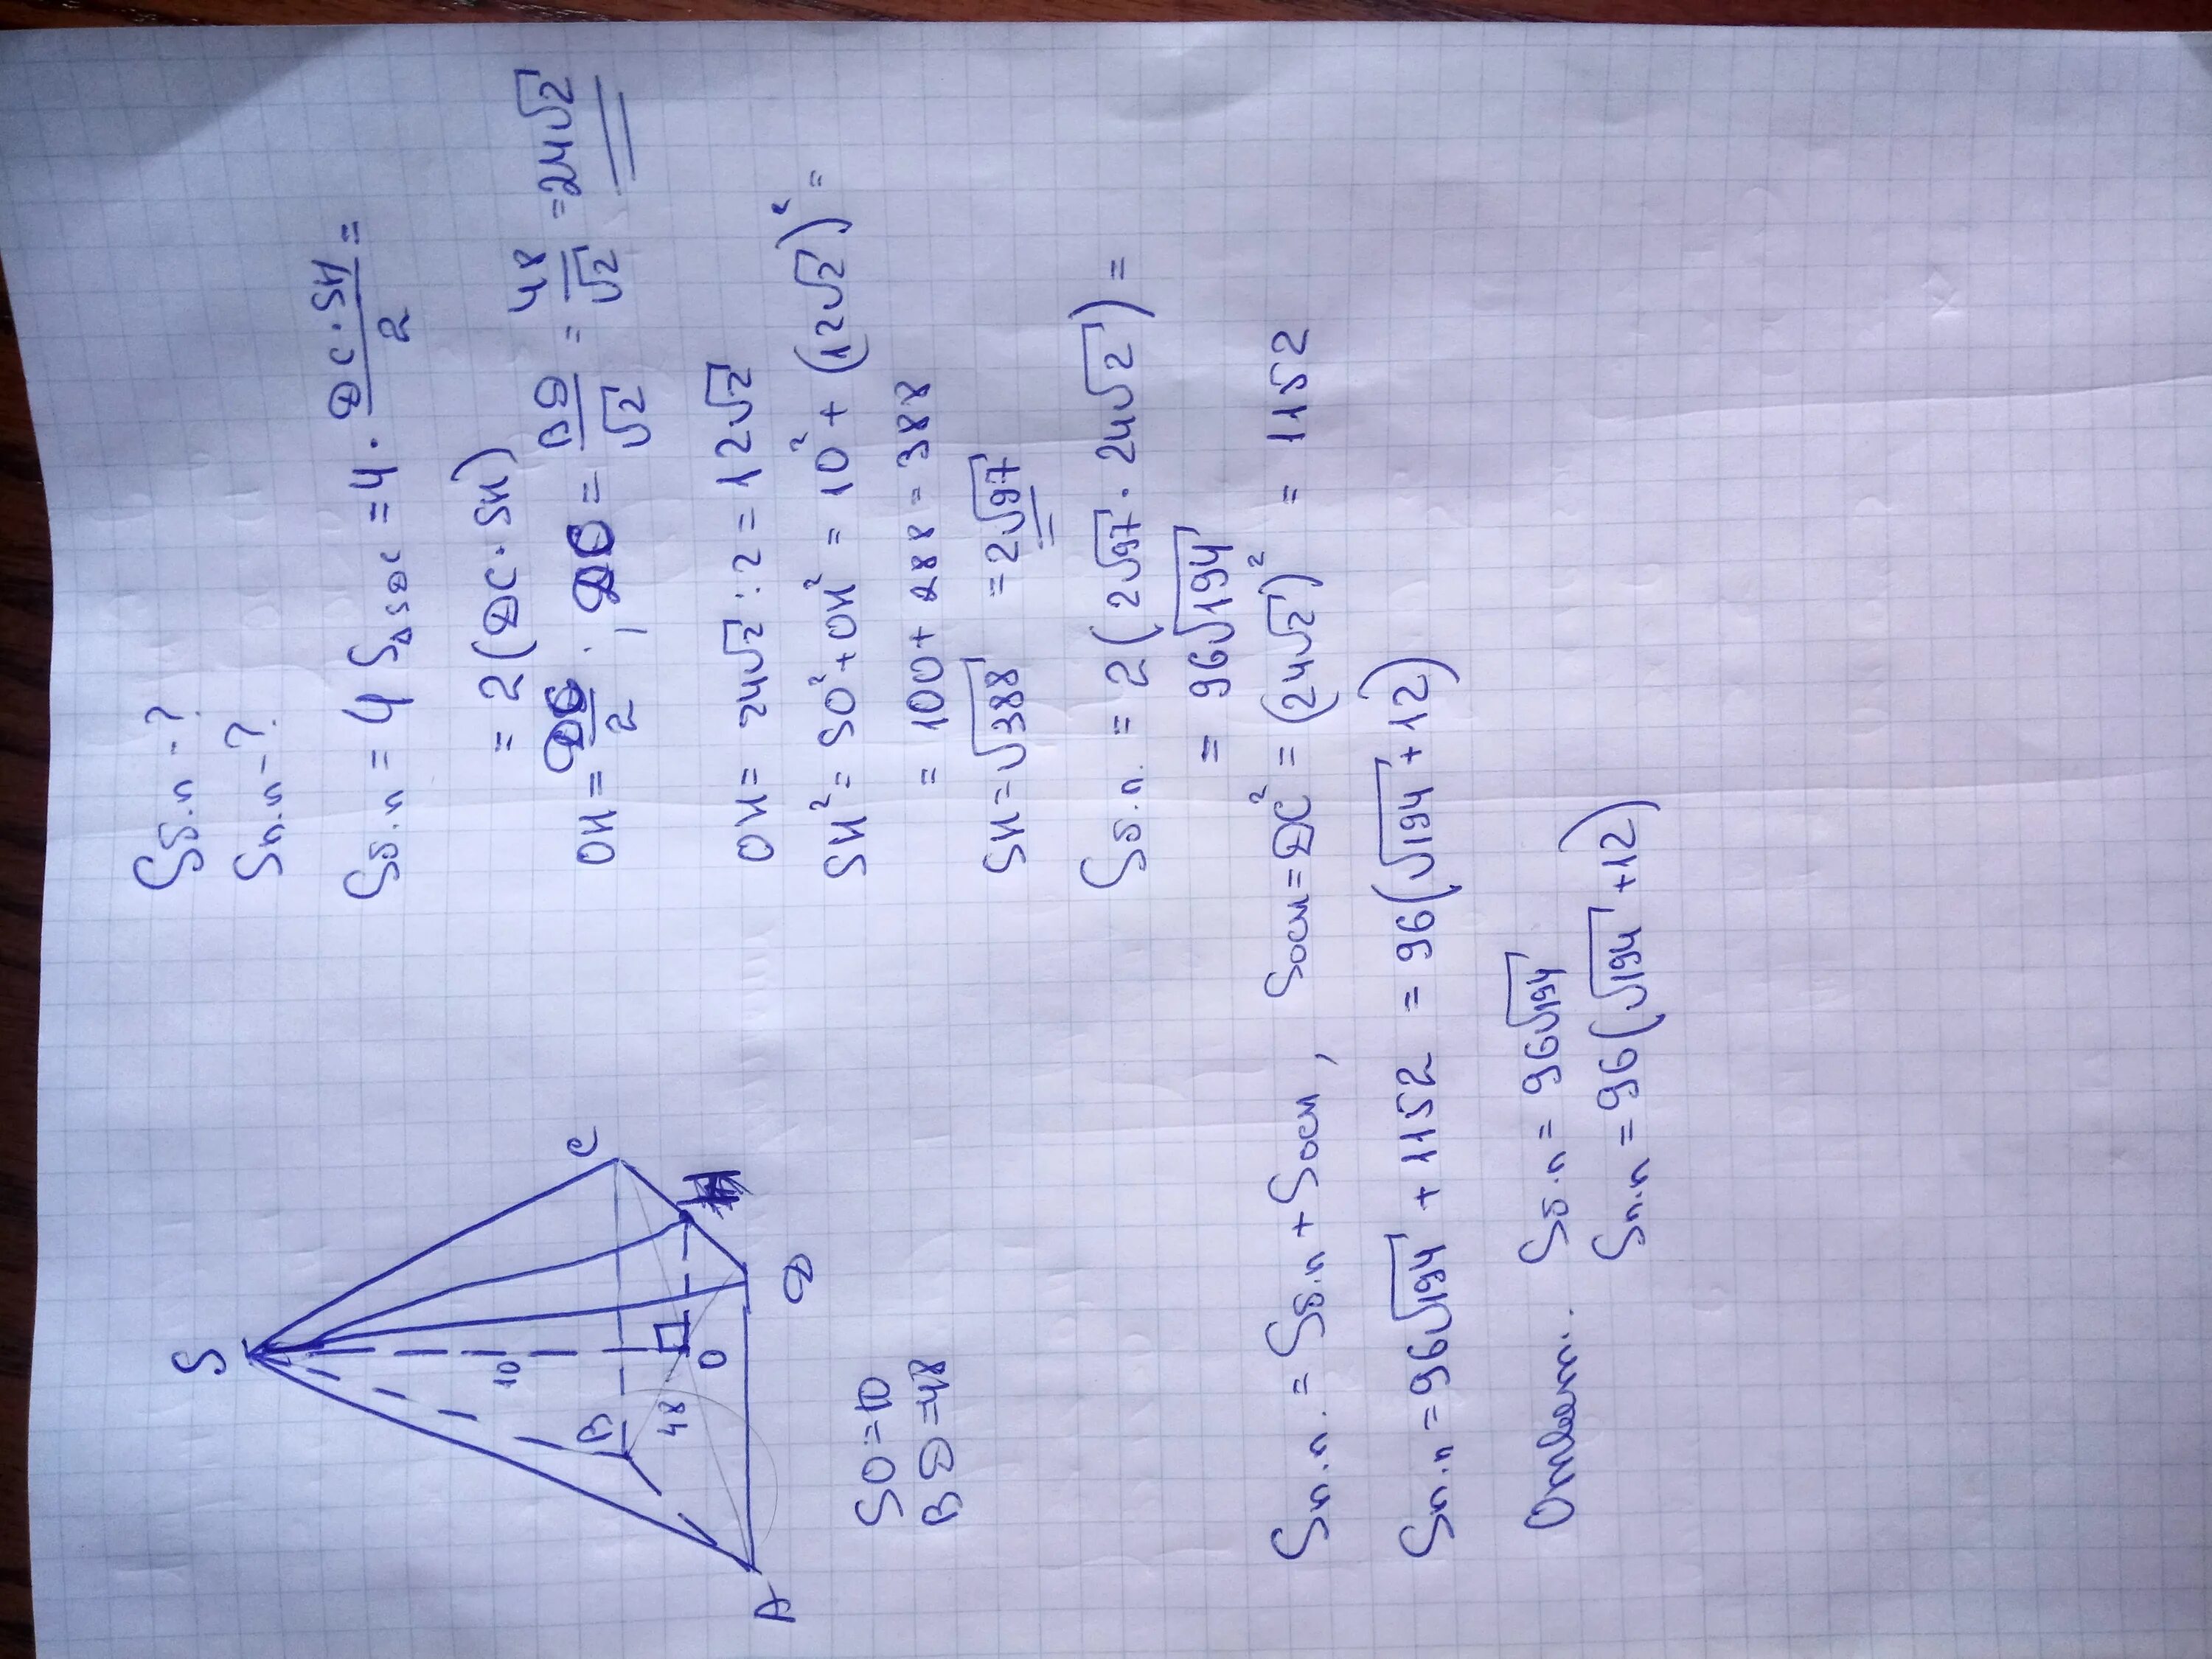 S
10
B
48
C
H
O
A
D
SO=10
BD=48
Sб.п-?
Sп.п-?
Sб.п = 4 S△SDC = 4 · DC·SH/2 =
= 2(DC·SH)
OH = DC/2 , DC = BD/√2 = 48/√2 = 24√2
OH = 24√2 : 2 = 12√2
SH² = SO² + OH² = 10² + (12√2)² =
= 100 + 288 = 388
SH = √388 = 2√97
Sб.п. = 2(2√97 · 24√2) =
= 96√194
Sп.п. = Sб.п + Sосн, Sосн = DC² = (24√2)² = 1152
Sп.п = 96√194 + 1152 = 96(√194 + 12)
Ответ: Sб.п = 96√194
Sп.п = 96(√194 + 12)